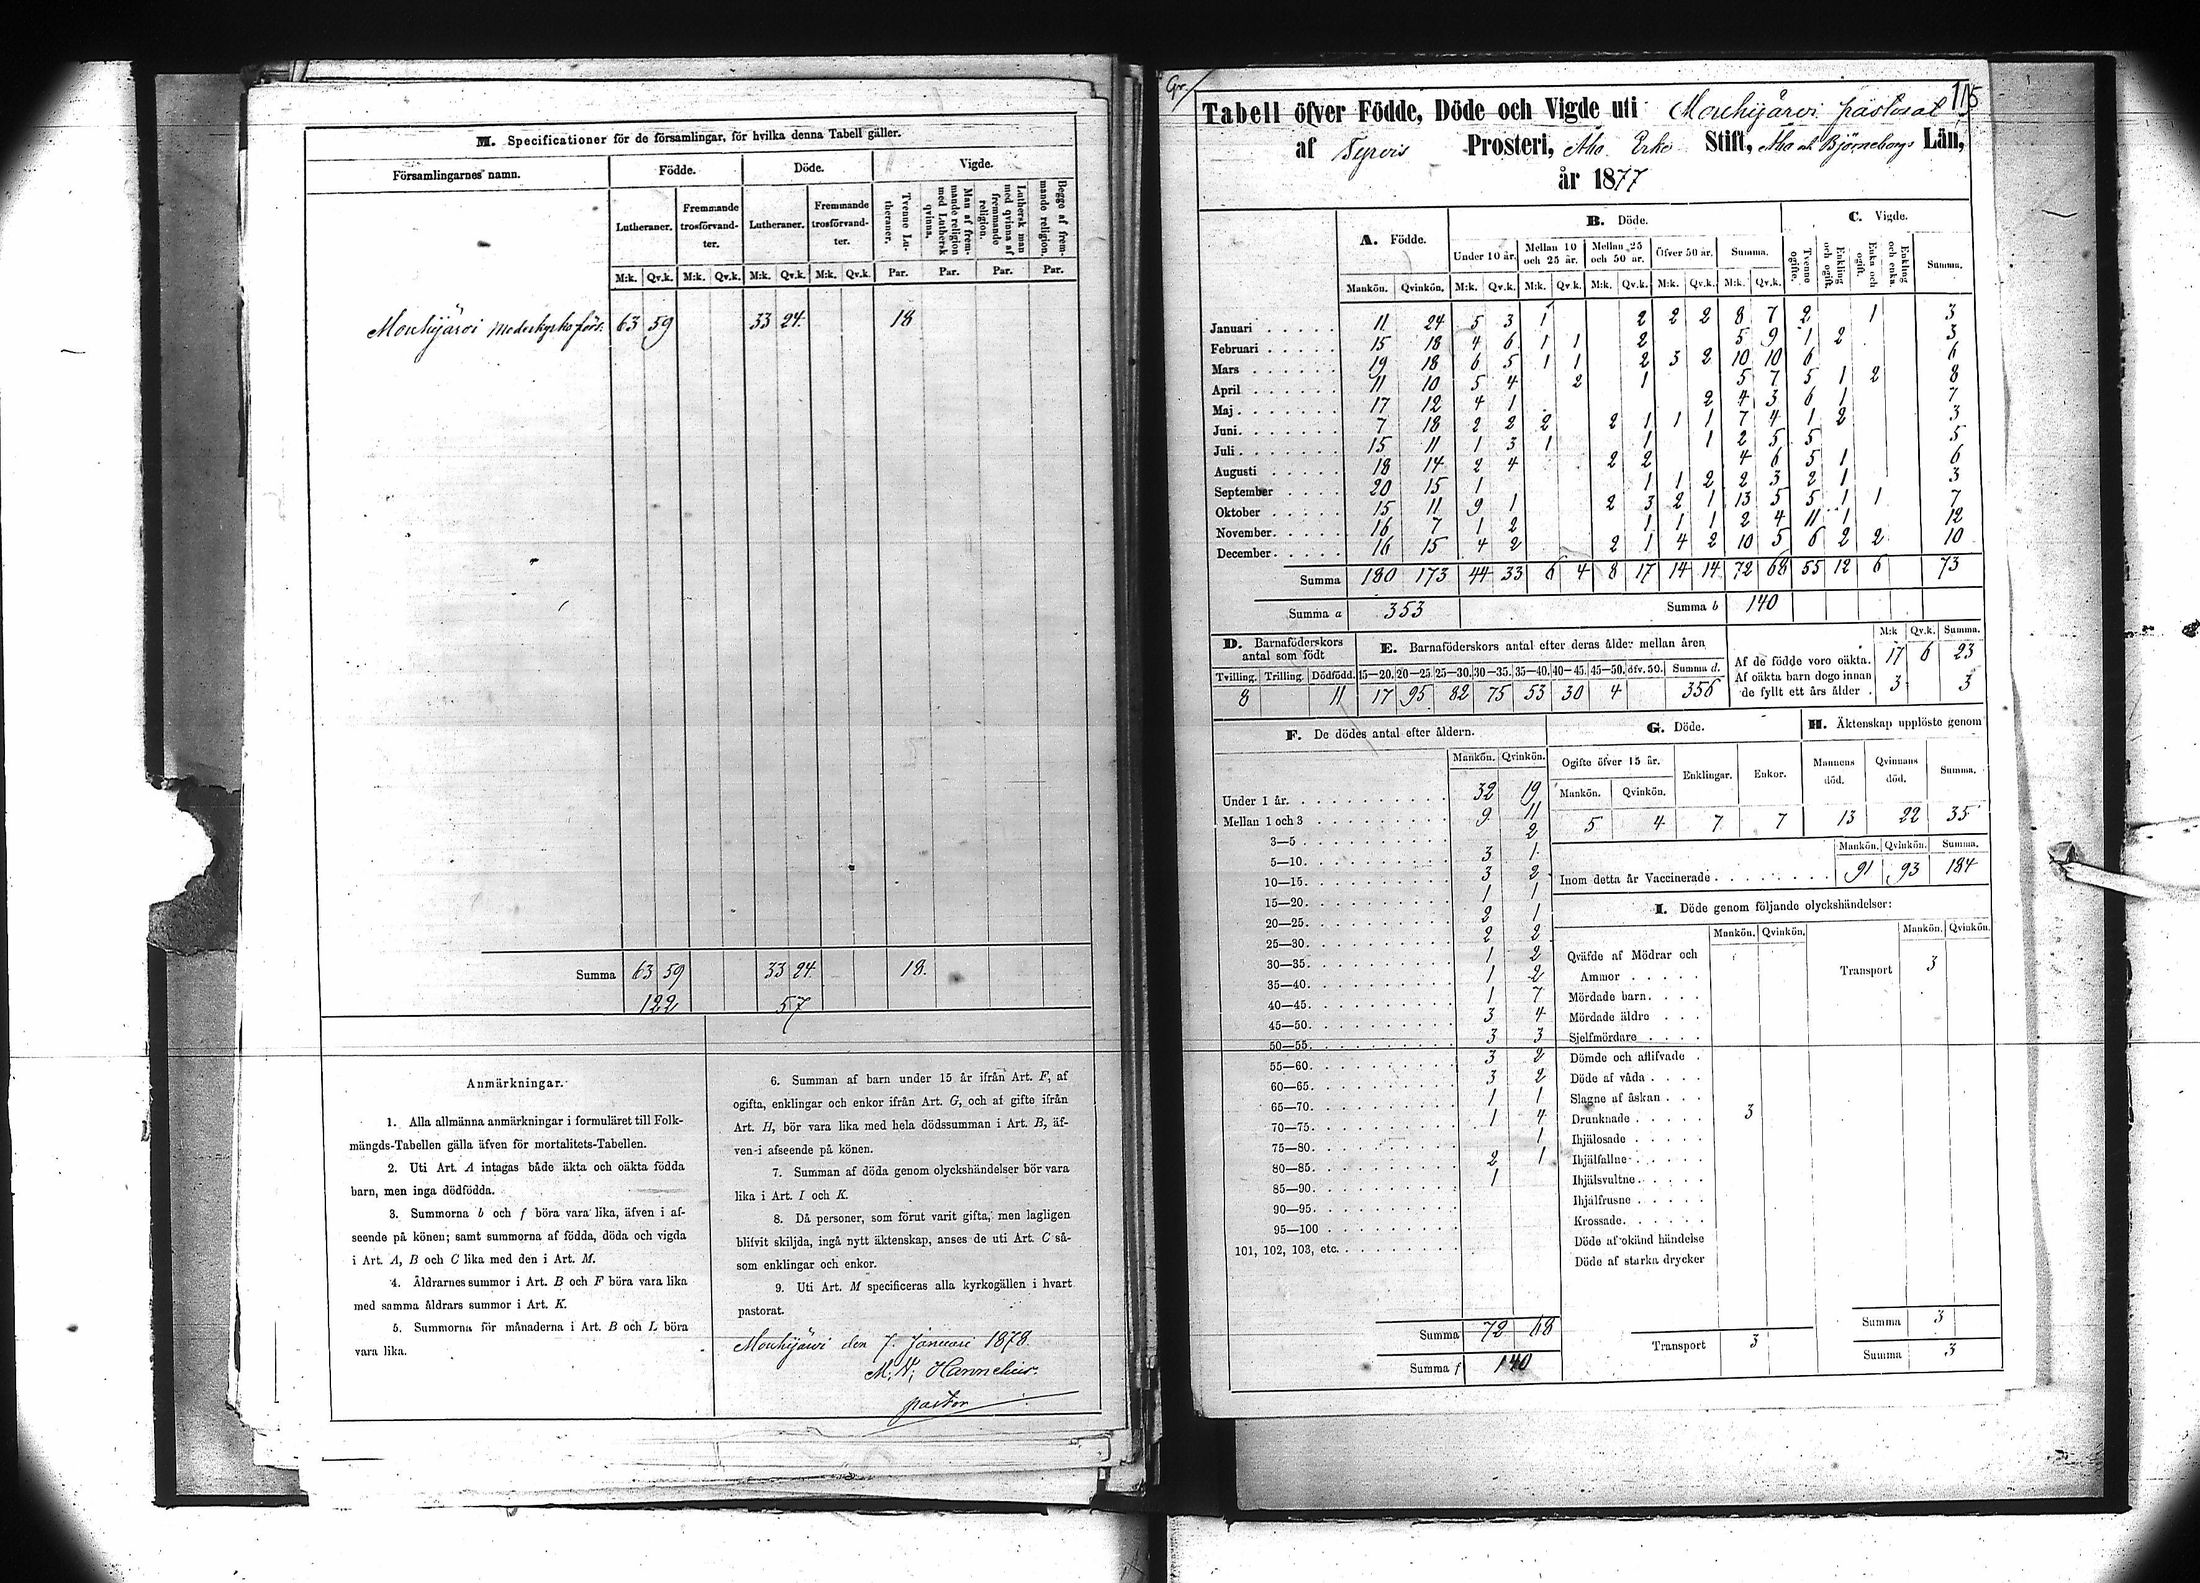 M. Specificationer för de församlingar, för hvilka denna Tabell gäller.
Församlingarnes namn. Födde. Döde. Vigde.
Lutheraner. Fremmande trosförvandter. Lutheraner. Fremmande trosförvandter. Tvenne Lutheraner. Man af fremmande religion med Luthersk qvinna. Luthersk man med qvinna af fremmande religion. Begge af fremmande religion.
M:k. Qv.k. M:k. Qv.k. M:k. Qv.k. M:k. Qv.k. Par. Par. Par. Par.
Mouhijärvi Moderkyrko förs. 63 59 33 24 18
Summa 63 59 33 24 18.
122 57
Anmärkningar.
1. Alla allmänna anmärkningar i formuläret till Folk-
mängds-Tabellen gälla äfven för mortalitets-Tabellen.
2. Uti Art. A intagas både äkta och oäkta födda
barn, men inga dödfödda.
3. Summorna b och f böra vara lika, äfven i af-
seende på könen; samt summorna af födda, döda och vigda
i Art. A, B och C lika med den i Art. M.
4. Åldrarnes summor i Art. B och F böra vara lika
med samma åldrars summor i Art. K.
5. Summorna för månaderna i Art. B och L böra
vara lika.
6. Summan af barn under 15 år ifrån Art. F, af
ogifta, enklingar och enkor ifrån Art. G, och af gifte ifrån
Art. H, bör vara lika med hela dödssumman i Art. B, äf-
ven i afseende på könen.
7. Summan af döda genom olyckshändelser bör vara
lika i Art. I och K.
8. Då personer, som förut varit gifta, men lagligen
blifvit skiljda, ingå nytt äktenskap, anses de uti Art. C så-
som enklingar och enkor.
9. Uti Art. M specificeras alla kyrkogällen i hvart
pastorat.
Mouhijärvi den 7. Januari 1878.
pastor
115
Tabell öfver Födde, Döde och Vigde uti Mouhijärvi pastorat
af Tyrvis Prosteri, Åbo Erke Stift, Åbo och Björneborgs Län,
år 1877
A. Födde. B. Döde. C. Vigde.
Under 10 år. Mellan 10 och 25 år. Mellan 25 och 50 år. Öfver 50 år. Summa. Tvenne ogifte. Enkling och ogift. Enka och ogift. Enkling och enka. Summa.
Mankön. Qvinkön. M:k. Qv.k. M:k. Qv.k. M:k. Qv.k. M:k. Qv.k. M:k. Qv.k.
Januari 11 24 5 3 1 2 2 2 8 7 2 1 3
Februari 15 18 4 6 1 1 2 5 9 1 2 3
Mars 19 18 6 5 1 1 2 3 2 10 10 6 6
April 11 10 5 4 2 1 5 7 5 1 2 8
Maj 17 12 4 1 2 4 3 6 1 7
Juni 7 18 2 2 2 2 1 1 1 7 4 1 2 3
Juli 15 11 1 3 1 1 1 2 5 5 5
Augusti 18 14 2 4 2 2 4 6 5 1 6
September 20 15 1 1 1 2 2 3 2 1 3
Oktober 15 11 9 1 2 3 2 1 13 5 5 1 1 7
November 16 7 1 2 1 1 1 2 4 11 1 12
December 16 15 4 2 2 1 4 2 10 5 6 2 2 10
Summa 180 173 44 33 6 4 8 17 14 14 72 68 55 12 6 73
Summa a 353 Summa b 140
D. Barnaföderskors antal som födt
Tvilling. Trilling. Dödfödd.
8 11
E. Barnaföderskors antal efter deras ålder mellan åren
15—20. 20—25. 25—30. 30—35. 35—40. 40—45. 45—50. öfv. 50. Summa d.
17 95 82 75 53 30 4 356
M:k Qv.k. Summa.
Af de födde voro oäkta. 17 6 23
Af oäkta barn dogo innan
de fyllt ett års ålder. 3 3
F. De dödes antal efter åldern.
Mankön. Qvinkön.
Under 1 år. 32 19
Mellan 1 och 3 9 11
3—5 2
5—10 3 1
10—15 3 2
15—20 1 1
20—25 2 1
25—30 2 2
30—35 1 2
35—40 1 2
40—45 1 7
45—50 3 4
50—55 3 3
55—60 3 2
60—65 3 2
65—70 1 1
70—75 1 4
75—80 1
80—85 2 1
85—90 1
90—95
95—100
101, 102, 103, etc.
Summa 72 68
Summa f 140
G. Döde.
Ogifte öfver 15 år. Enklingar. Enkor.
Mankön. Qvinkön.
5 4 7 7
H. Äktenskap upplöste genom
Mannens död. Qvinnans död. Summa.
13 22 35
Mankön. Qvinkön. Summa.
Inom detta år Vaccinerade 91 93 184
I. Döde genom följande olyckshändelser:
Mankön. Qvinkön. Mankön. Qvinkön.
Qväfde af Mödrar och
Ammor
Transport 3
Mördade barn
Mördade äldre
Sjelfmördare
Dömde och aflifvade
Döde af våda
Slagne af åskan
Drunknade 3
Ihjälosade
Ihjälfallne
Ihjälsvultne
Ihjälfrusne
Krossade
Döde af okänd händelse
Döde af starka drycker
Summa 3
Transport 3
Summa 3